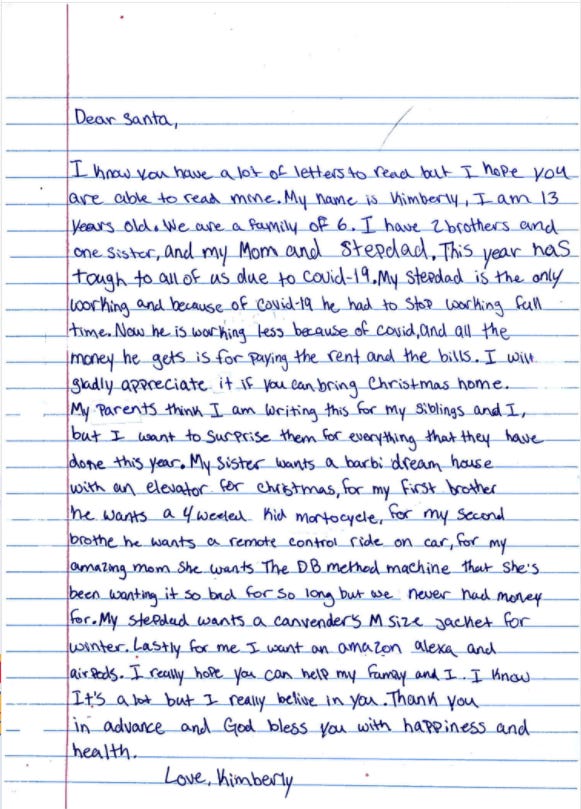 Dear Santa,
I know you have a lot of letters to read but I hope you
are able to read mine. My name is Kimberly, I am 13
years old. We are a family of 6. I have 2 brothers and
one sister, and my Mom and Stepdad. This year has
tough to all of us due to covid-19. My stepdad is the only
working and because of covid-19 he had to stop working full
time. Now he is working less because of covid, and all the
money he gets is for paying the rent and the bills. I will
gladly appreciate it if you can bring Christmas home.
My parents think I am writing this for my siblings and I,
but I want to surprise them for everything that they have
done this year. My sister wants a barbi dream house
with an elevator for christmas, for my first brother
he wants a 4 weeled kid mortocycle, for my second
brothe he wants a remote control ride on car, for my
amazing mom she wants The DB method machine that she's
been wanting it so bad for so long but we never had money
for. My stepdad wants a canvender's M size jacket for
winter. Lastly for me I want an amazon alexa and
airpods. I really hope you can help my famay and I. I know
It's a lot but I really belive in you. Thank you
in advance and God bless you with happiness and
health.
Love, Kimberly